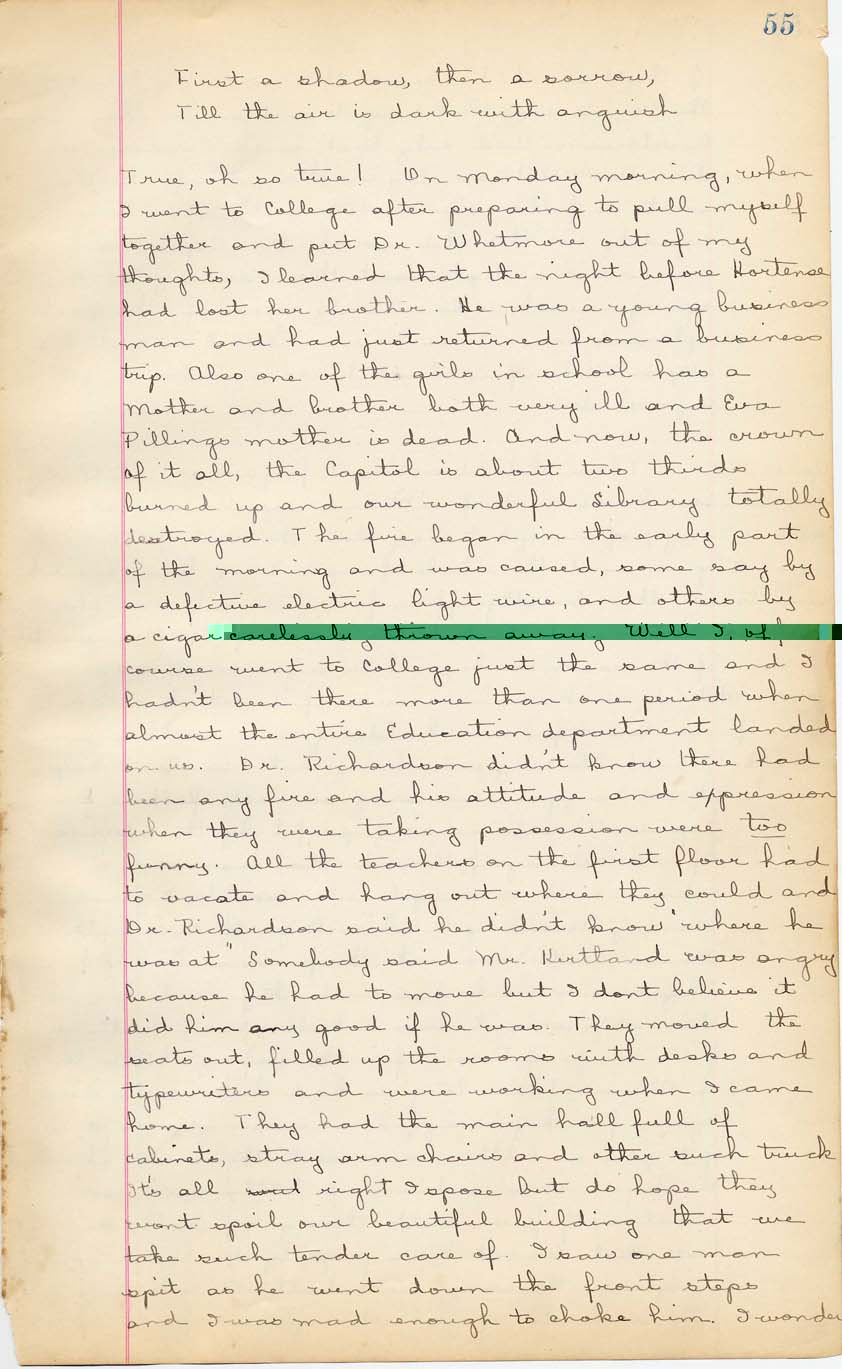 55
First a shadow, then a sorrow,
Till the air is dark with anguish
True, oh so true! On Monday morning, when
I went to College after preparing to pull myself
together and put Dr. Whetmore out of my
thoughts, I learned that the night before Hortense
had lost her brother. He was a young business
man and had just returned from a business
trip. Also one of the girls in school has a
Mother and brother both very ill and Eva
Pillings mother is dead. And now, the crown
of it all, the Capitol is about two thirds
burned up and our wonderful Library totally
destroyed. The fire began in the early part
of the morning and was caused, some say by
a defective electric light wire, and others by
a cigar carelessly thrown away. Well I, of
course went to College just the same and I
hadn't been there more than one period when
almost the entire Education department landed
on us. Dr. Richardson didn't know there had
been any fire and his attitude and expression
when they were taking possession were too
funny. All the teachers on the first floor had
to vacate and hang out where they could and
Dr. Richardson said he didn't know "where he
was at" Somebody said Mr. Kirtland was angry
because he had to move but I dont believe it
did him any good if he was. They moved the
seats out, filled up the rooms with desks and
typewriters and were working when I came
home. They had the main hall full of
cabinets, stray arm chairs and other such truck
It's all right I spose but do hope they
wont spoil our beautiful building that we
take such tender care of. I saw one man
spit as he went down the front steps
and I was mad enough to choke him. I wonder